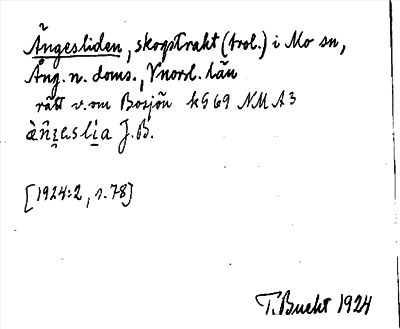 Ängesliden, skogstrakt (trol.) i Mo sn,
Ång. n. doms., Vnorrl. län
rätt v. om Bosjön kG 69 NMA3
J.B.
[1924:2, s. 78]
T. Bucht 1924